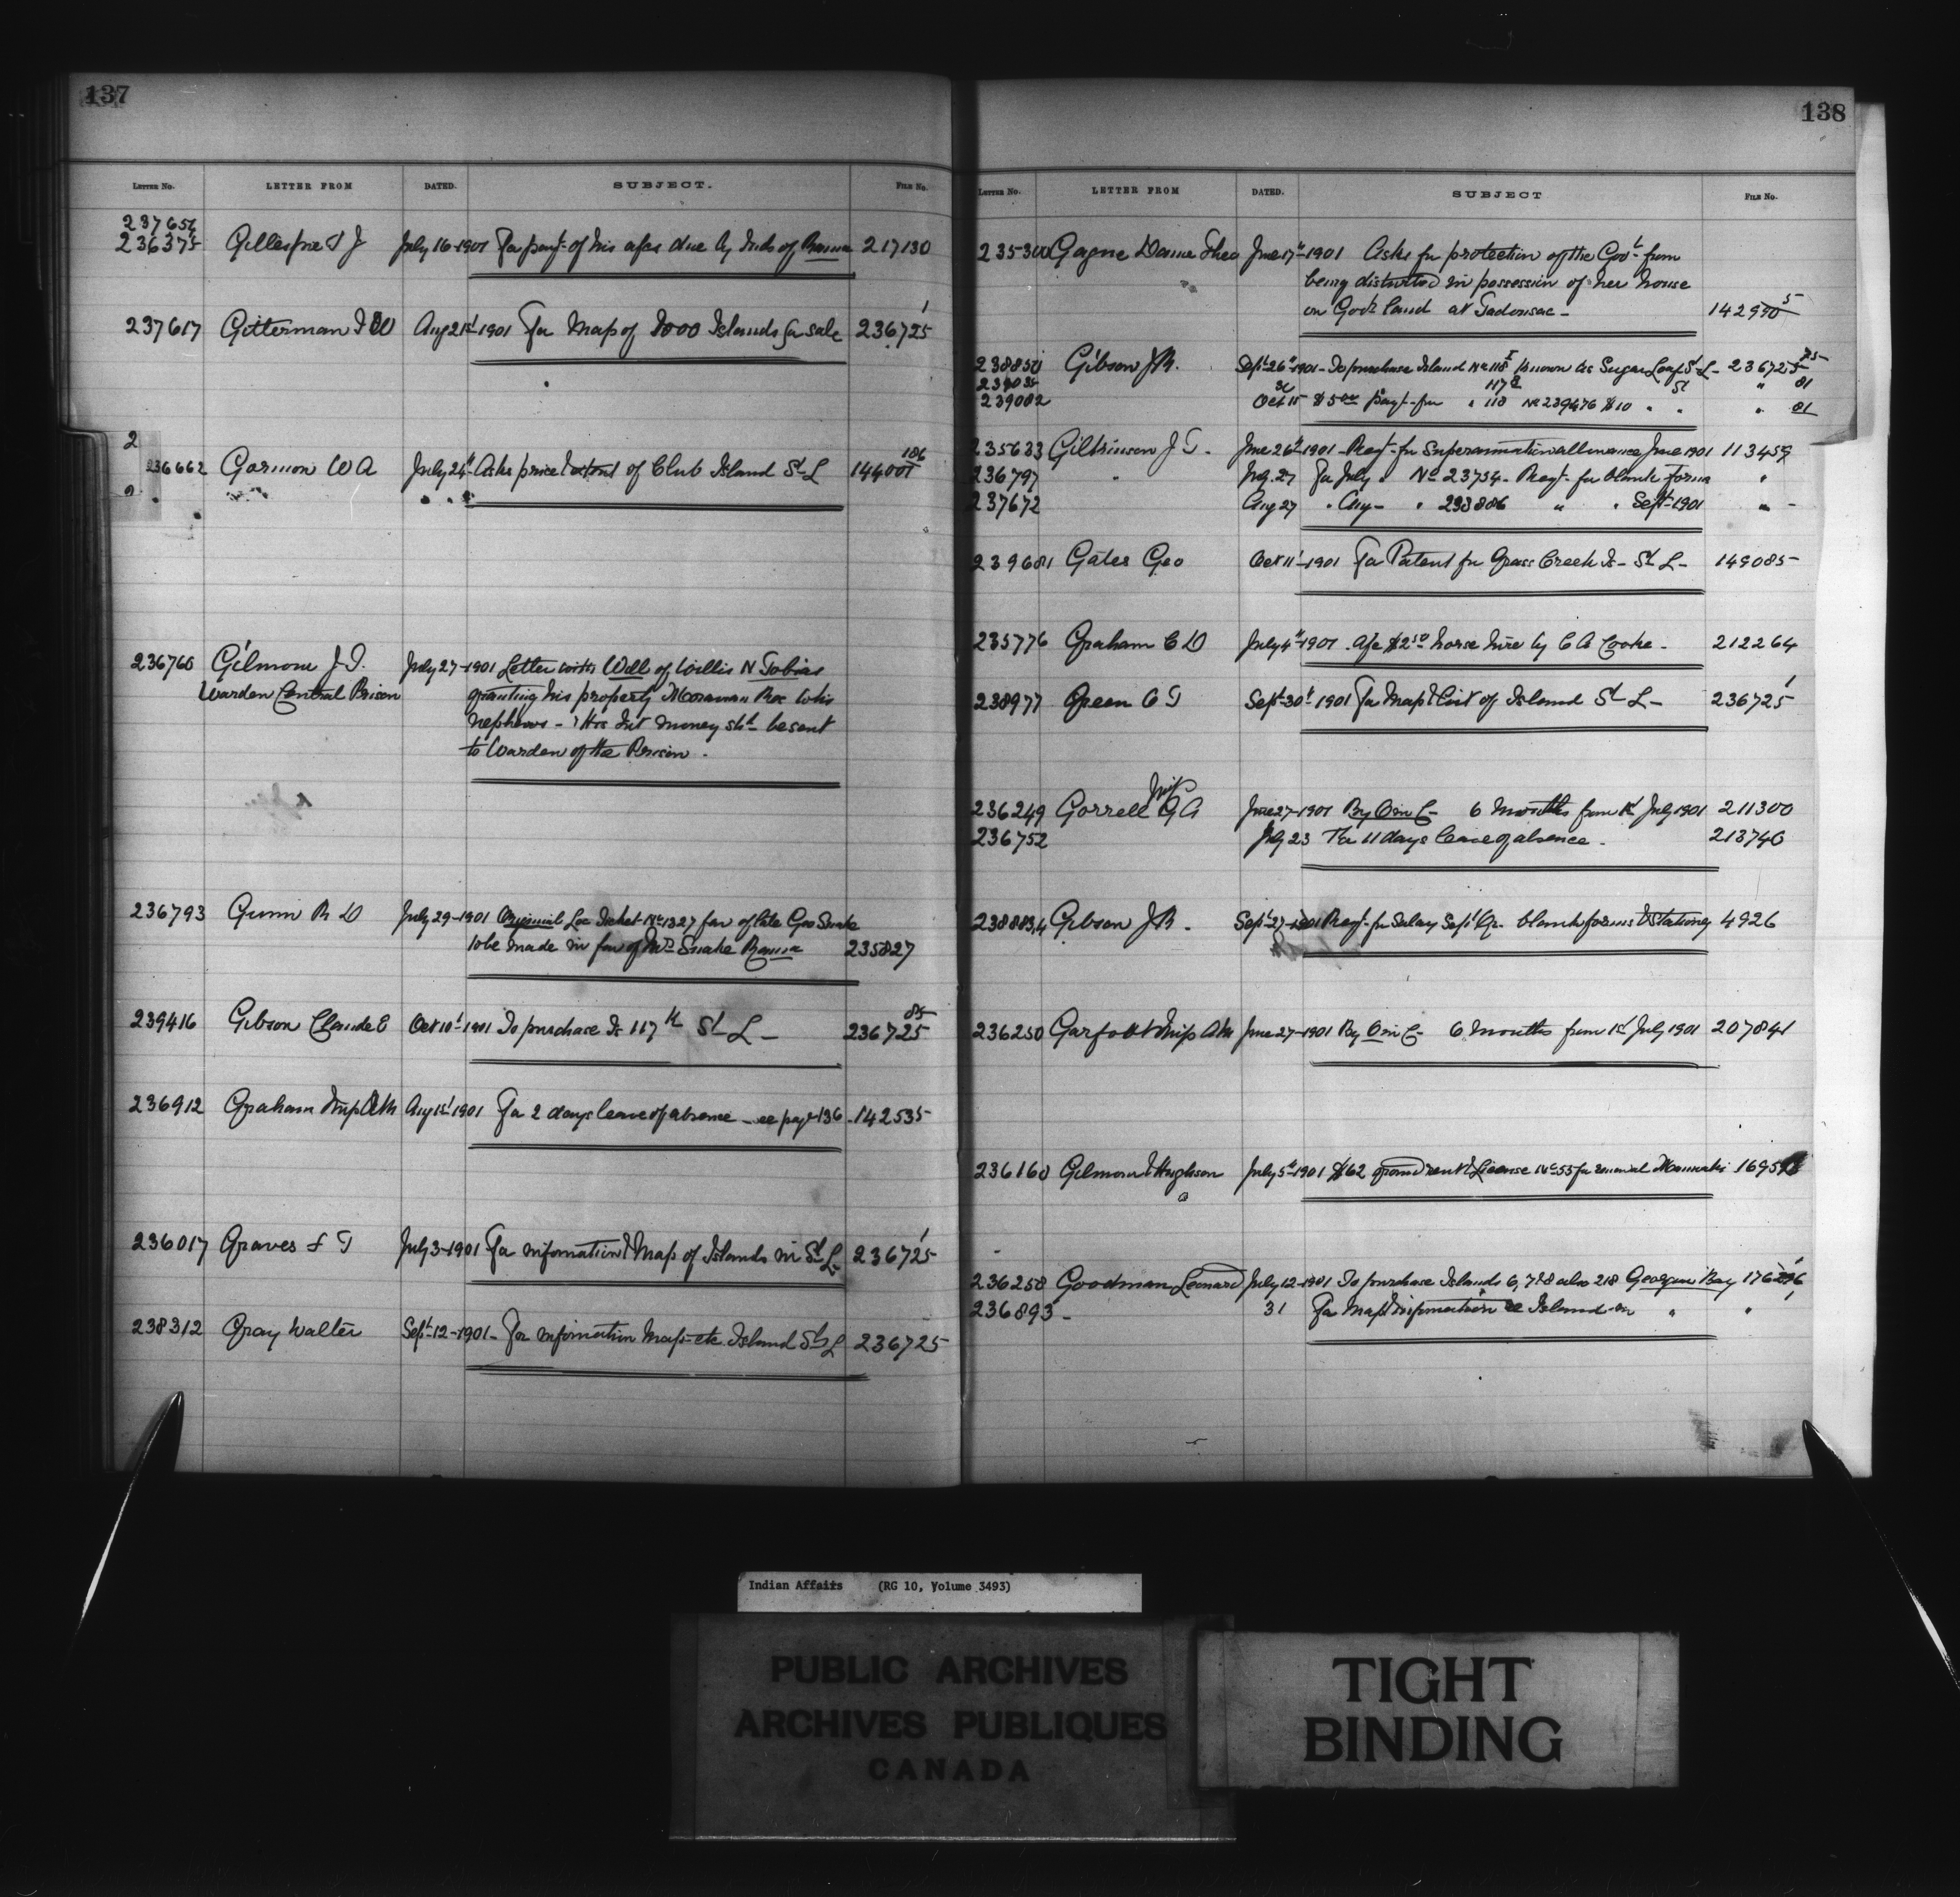 137
LETTER No. LETTER FROM DATED. SUBJECT. FILE No.
237656
236375 Gillespie T J July 16-1901 For payt of his a/cs due by Inds of Rama 217130
237617 Gitterman I W Aug 21st 1901 For Map of 1000 Islands for sale 236725 1
2
236662 Gormon W A July 24th Asks price & extent of Club Island St L 144001 186
236760 Gilmour J T. July 27-1901 Letter with Will of Willis N Tobias
Warden Central Prison granting his property Moravian Res to his
nephews - & His Int money shd be sent
to Warden of the Prison.
236793 Gunn R D July 29-1901 Original Loc Ticket No 1327 fav of late Geo Snake
to be made in fav of Mrs Snake Rama 235827
239416 Gibson Claude E Oct 10th 1901 To purchase Is 117 K St L - 236725 85
236912 Graham Insp A M Aug 1st 1901 For 2 days leave of absence - see page 136 - 142535
236017 Graves F T July 3-1901 For information & Map of Islands in St L 236725 1
238312 Gray Walter Sept-12-1901- For information Maps etc Island St L 236725
138
LETTER No. LETTER FROM DATED. SUBJECT FILE No.
235300 Gagne Dame Theo June 17th-1901 Asks for protection of the Govt from
being disturbed in possession of her house
on Govt land at Tadousac - 142950 5
238850 Gibson J R. Sept 26th-1901- To purchase Island No 118 I known as Sugar Loaf St L - 236725 75
239035 30 117 I St " 81
239082 Oct 15 $5.00 payt for " 118 No 239476 $10 " " " 81
235633 Gilkinson J T. June 26th-1901 - Rect for Superannuation allowance June 1901 113459
236797 " July 27 For July " No 23734- Reqt for blank forms "
237672 Aug 27 " Aug - " 238886 " " Sept 1901 " -
239681 Gates Geo Oct 11th-1901 For Patent for Grass Creek Is - St L - 149085
235776 Graham C D July 4th-1901 - A/c $2.50 horse hire by C A Cooke - 212264
238977 Green C T Sept-30th 1901 For Map & List of Island St L - 236725 1
Insp
236249 Gorrell G A June 27-1901 By O in C - 6 months from 1st July 1901 211300
236752 July 23 For 11 days leave of absence - 213740
238883,4 Gibson J R. Sept 27-1901 Reqt for Salary Sept Qr - blank forms & Stationy 4926
236250 Garfoot Insp Alx June 27-1901 By O in C - 6 months from 1st July 1901 207841
236160 Gilmour & Hughson July 5th-1901 $62 ground rent & License No 55 for renewal Maniwaki
236258 Goodman Leonard July 12-1901 To purchase Islands 6, 7 & 8 also 218 Georgian Bay
236893 - 31 For Map & information re Island in " "
Indian Affairs (RG 10, Volume 3493)
PUBLIC ARCHIVES
ARCHIVES PUBLIQUES
CANADA
TIGHT
BINDING